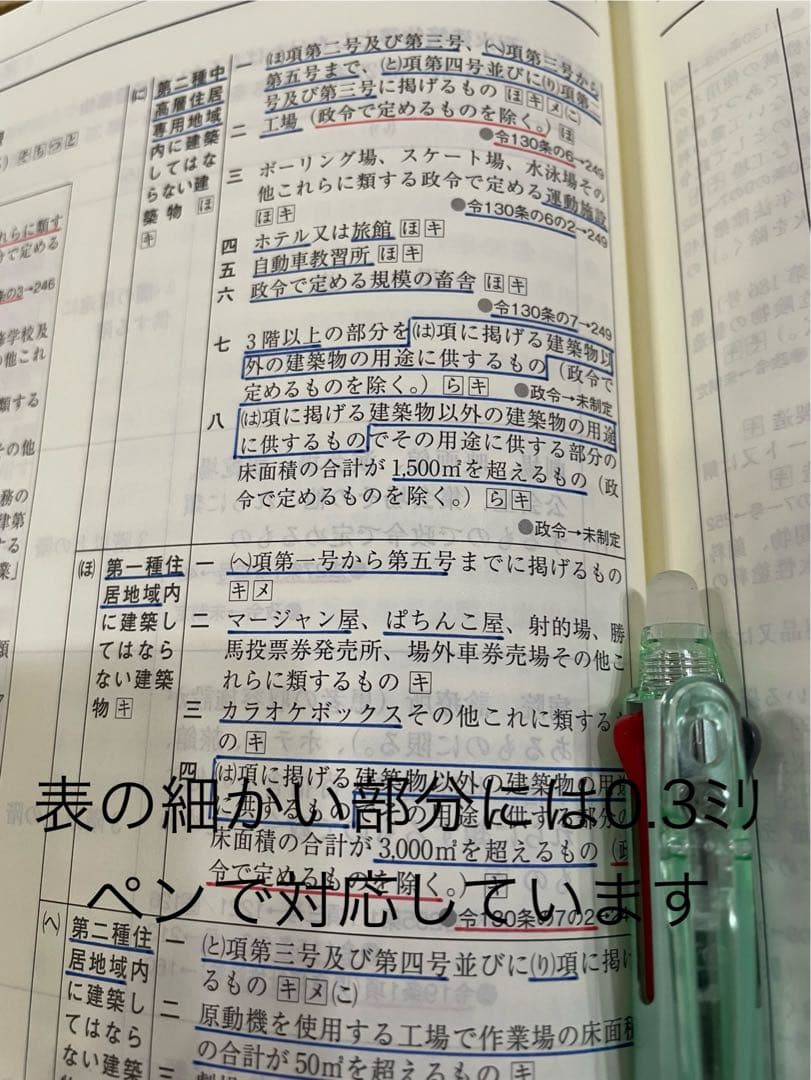 (に)
第二種中
高層住居
専用地域
内に建築
してはな
らない建
築物 ほ
キ
一 (ほ)項第二号及び第三号、(へ)項第三号から
第五号まで、(と)項第四号並びに(り)項第二
号及び第三号に掲げるもの ほ キ メ (こ)
二 工場(政令で定めるものを除く。) ほ
●令130条の6→249
三 ボーリング場、スケート場、水泳場その
他これらに類する政令で定める運動施設
ほ キ ●令130条の6の2→249
四 ホテル又は旅館 ほ キ
五 自動車教習所 ほ キ
六 政令で定める規模の畜舎 ほ キ
●令130条の7→249
七 3階以上の部分を(は)項に掲げる建築物以
外の建築物の用途に供するもの(政令で
定めるものを除く。) ら キ ●政令→未制定
八 (は)項に掲げる建築物以外の建築物の用途
に供するものでその用途に供する部分の
床面積の合計が1,500㎡を超えるもの(政
令で定めるものを除く。) ら キ
●政令→未制定
(ほ)
第一種住
居地域内
に建築し
てはなら
ない建築
物 キ
一 (へ)項第一号から第五号までに掲げるもの
キ メ
二 マージャン屋、ぱちんこ屋、射的場、勝
馬投票券発売所、場外車券売場その他こ
れらに類するもの キ
三 カラオケボックスその他これに類するも
の キ
四 (は)項に掲げる建築物以外の建築物の用途
に供するものでその用途に供する部分の
床面積の合計が3,000㎡を超えるもの(政
令で定めるものを除く。) キ
●令130条の7の2→
(へ)
第二種住
居地域内
に建築し
てはなら
ない建築
一 (と)項第三号及び第四号並びに(り)項に掲げ
るもの キ メ (こ)
二 原動機を使用する工場で作業場の床面積
の合計が50㎡を超えるもの キ
表の細かい部分には0.3ミリ
ペンで対応しています